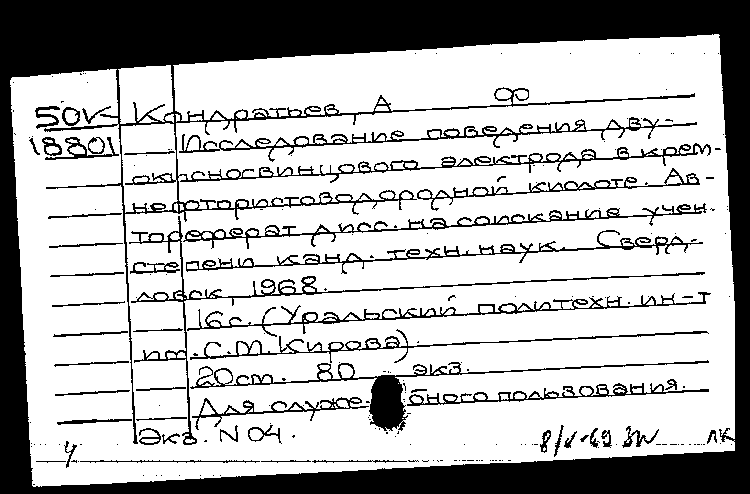 50К Кондратьев, А Ф
18801 Исследование поведения дву-
окисносвинцового электрода в крем-
нефтористоводородной кислоте. Ав-
тореферат дисс. на соискание учен.
степени канд. техн. наук. Сверд-
ловск, 1968.
16 с. (Уральский политехн. ин-т
им. С.М. Кирова).
20 см. 80 экз.
Для служебного пользования.
Экз. N 04.
У 8/V-69 ЛК